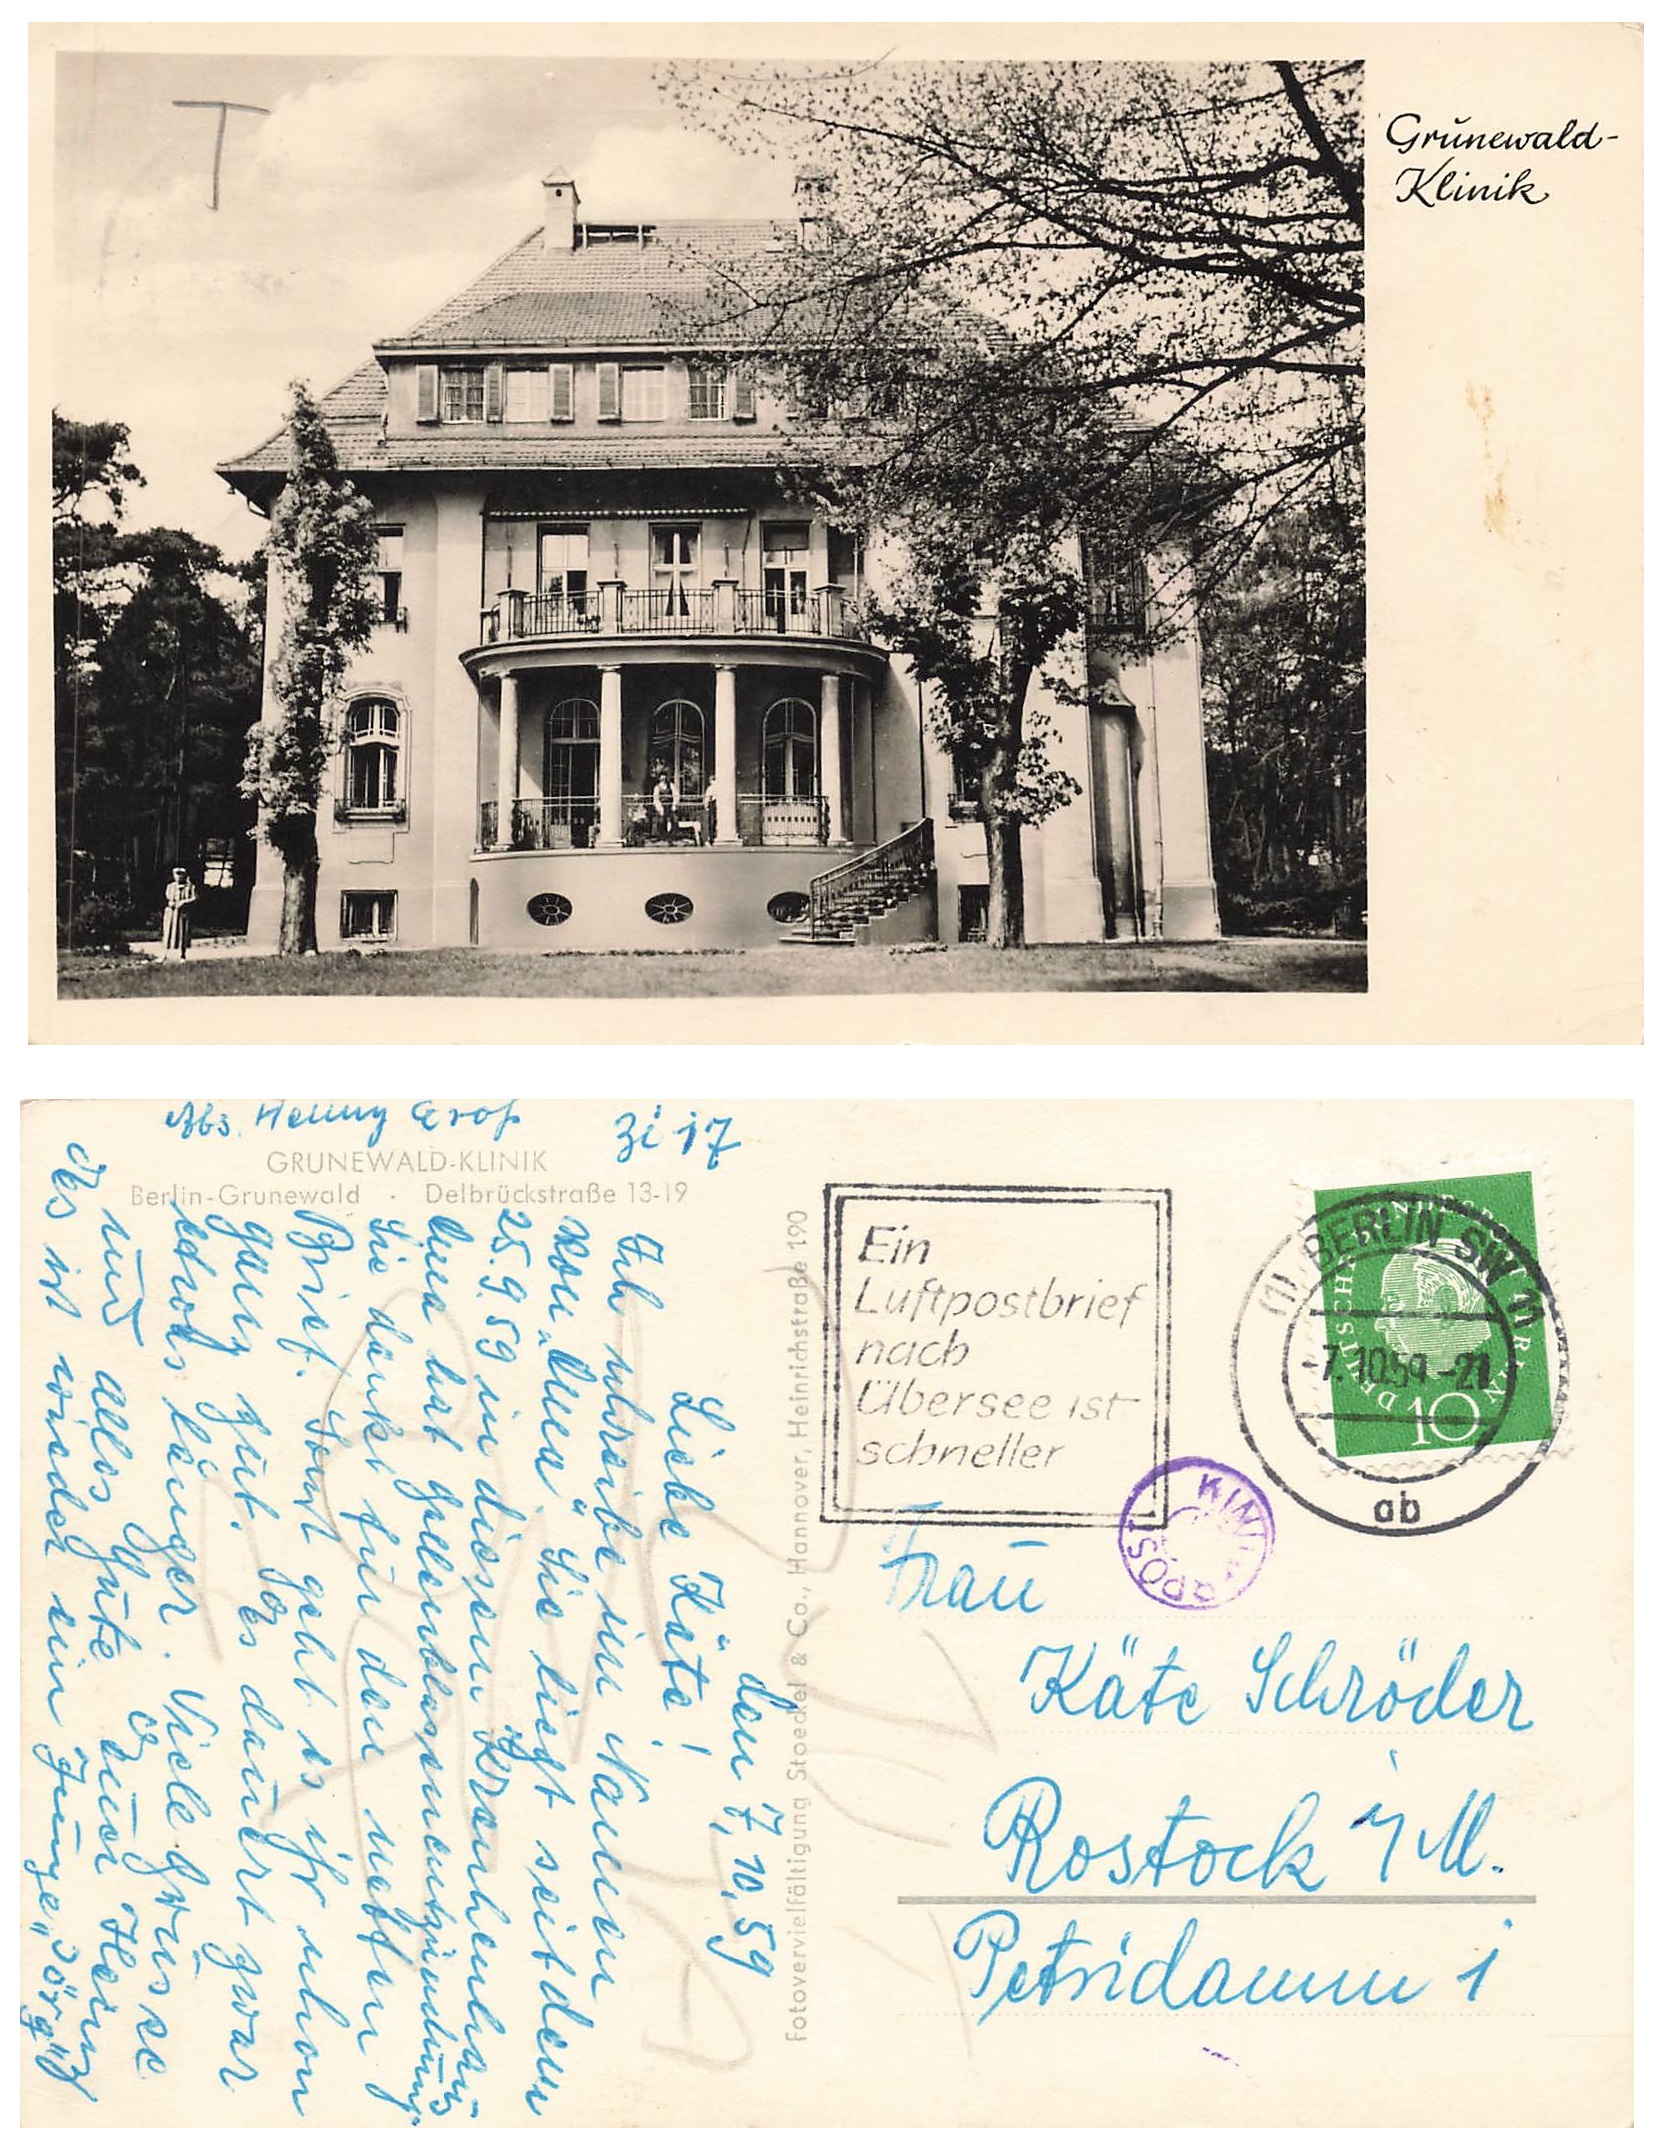 T
Grunewald-
Klinik
Abs. Henny Groß
Zi 17
GRUNEWALD-KLINIK
Berlin-Grunewald · Delbrückstraße 13-19
den 7.10.59
Liebe Käte!
Ich schreibe im Namen
von
25.9.59 in diesem Krankenhaus
hat Gallenblasenentzündung.
Sie danken für den netten
Brief. Sonst geht es ihr schon
ganz gut. Es dauert zwar
etwas länger. Viele Grüsse
und alles Gute Euer Heinz
Es ist wieder ein Junge „Jörg“
Fotovervielfältigung Stoeckel & Co., Hannover, Heinrichstraße 190
Ein
Luftpostbrief
nach
Übersee ist
schneller
(1) BERLIN SW 11
-7.10.59-21
ab
DEUTSCHE BUNDESPOST BERLIN
10
Frau
Käte Schröder
Rostock i/M.
Petridamm 1